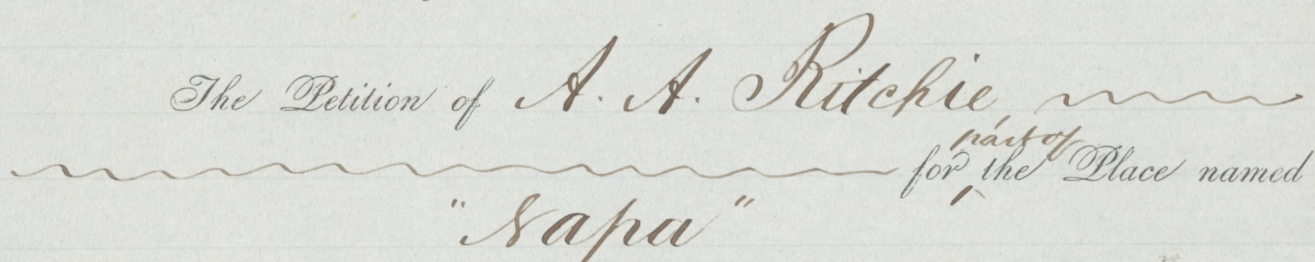 The Petition of A. A. Ritchie
part of
for the Place named
"Napa"